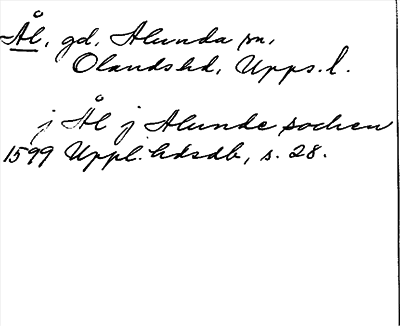 Ål, gd, Alunda sn,
Olands hd, Upps. l.
j Ål j Alunde sochen
1599 Uppl. hdsdb, s. 28.